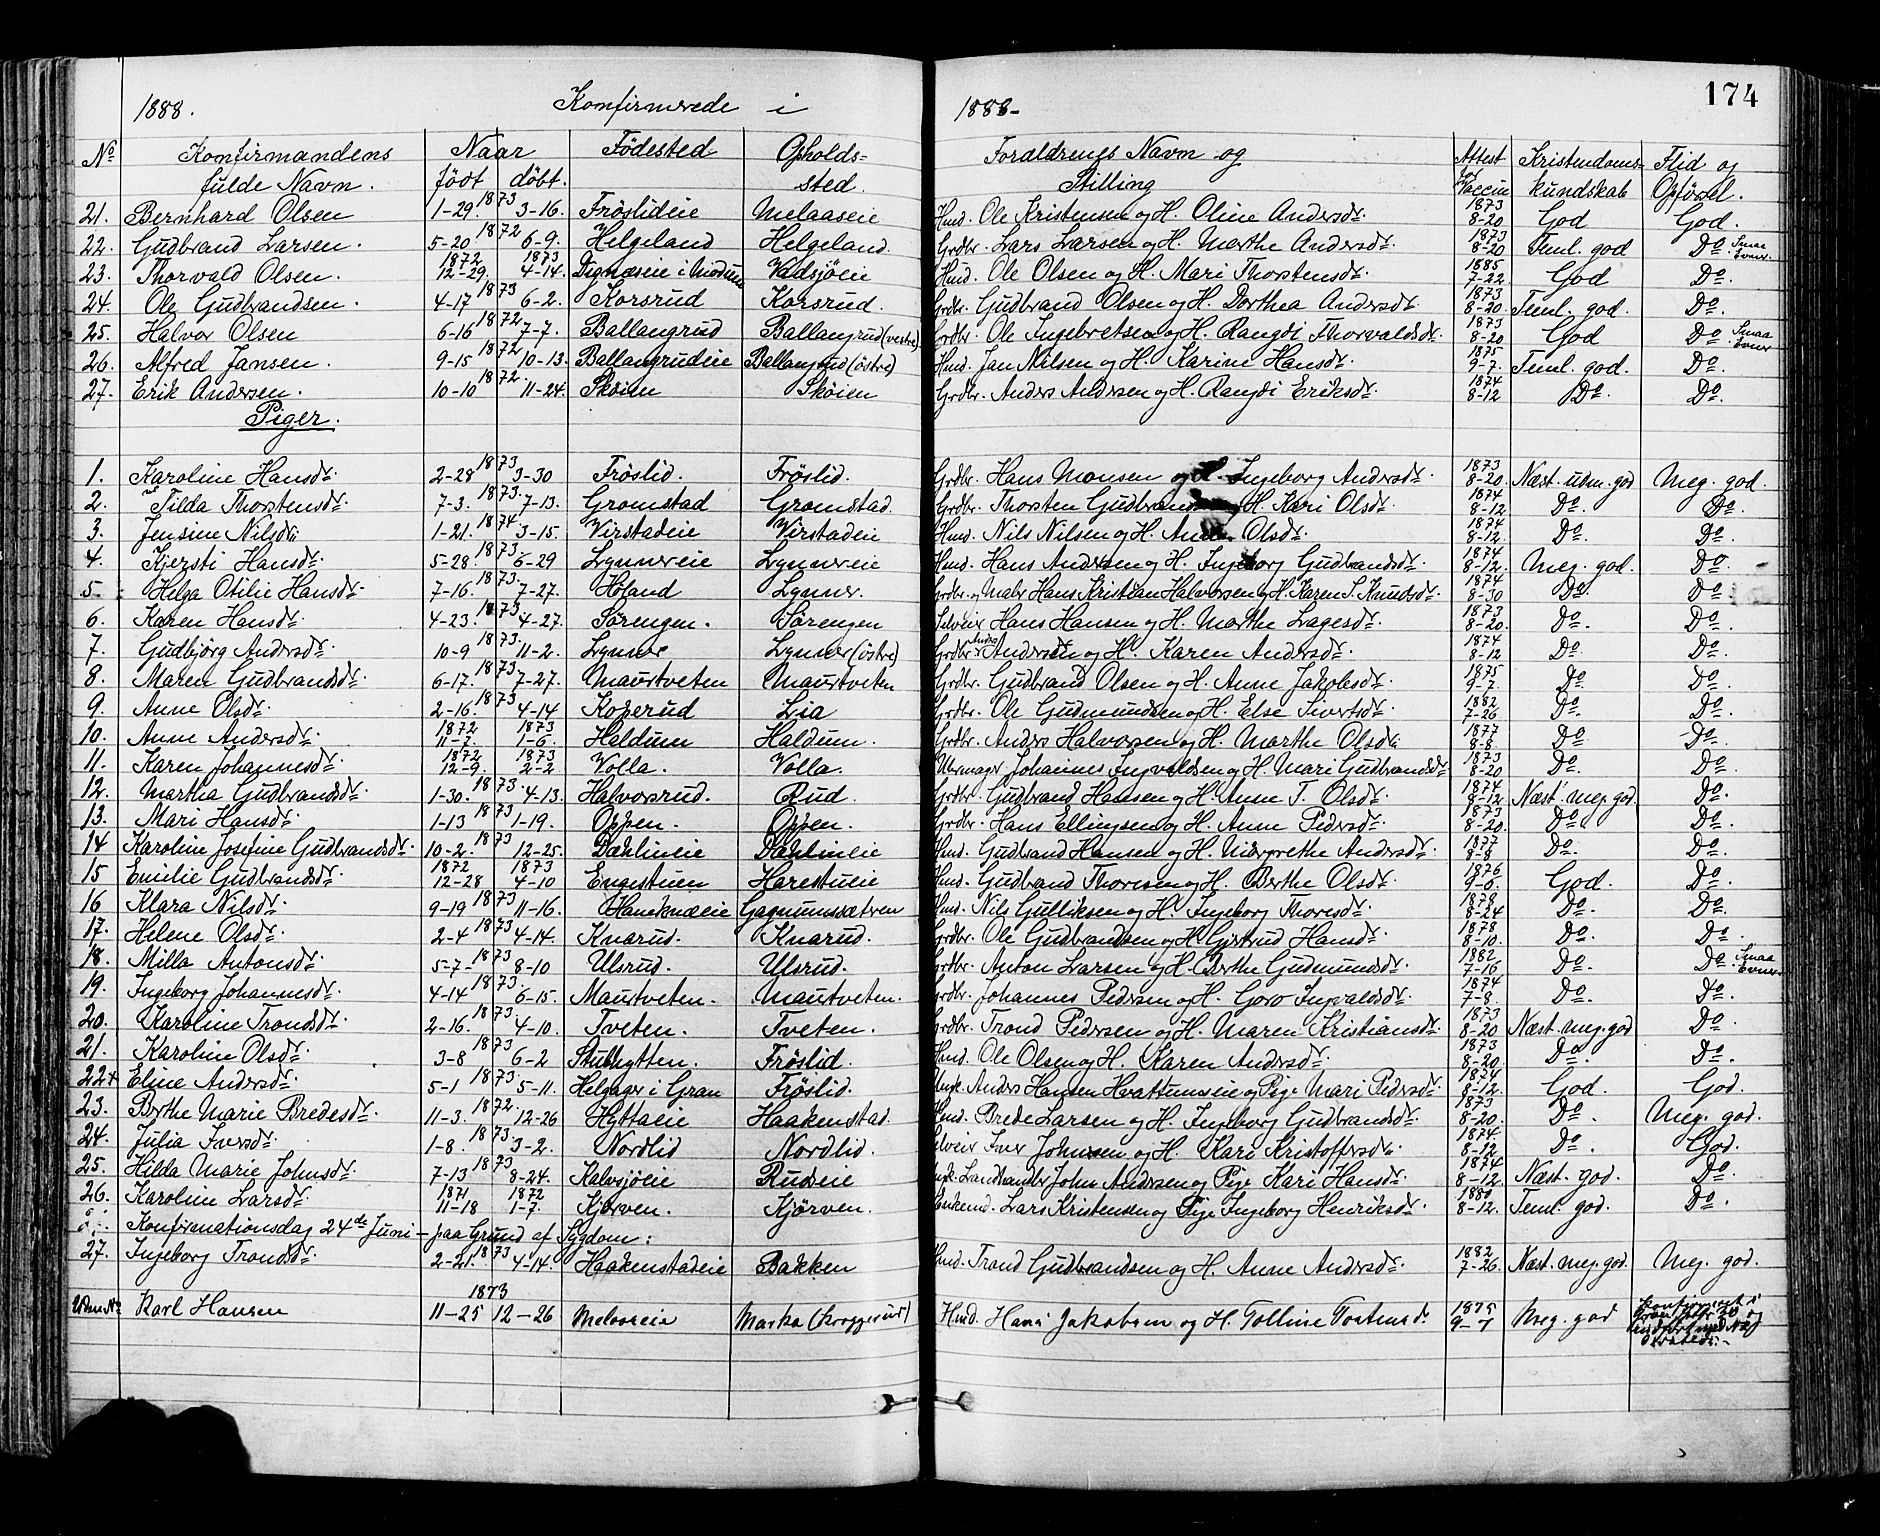 174
1888. Konfirmerede i 1888-
No Konfirmandens fulde Navn. Naar födt döbt. Födested Opholds-sted. Foraldrenes Navn og Stilling Attest for Vaccin Kristendoms-kundskab Flid og Opförsel.
21. Bernhard Olsen 1-29. 1873 3-16. Fröslideie Melaaseie Hmd. Ole Kristensen og H. Oline Andersdr. 1873 8-20 God God.
22. Gudbrand Larsen. 5-20 1872 6-9. Helgeland Helgeland. Grdbr. Lars Larsen og H. Marthe Andersdr. 1873 8-20 Teml. god Do. Smaa Evner.
23. Thorvald Olsen. 1872 12-29. 1873 4-14. i Modum Vadsjöeie Hmd. Ole Olsen og H. Mari Thorstensdr. 1885 7-22 God Do.
24. Ole Gudbrandsen. 4-17 1873 6-2. Korsrud Korsrud. Grdbr. Gudbrand Olsen og H. Dorthea Andersdr 1873 8-20 Teml. god. Do.
25. Halvor Olsen 6-16 1872 7-7. Ballangrud Ballangrud (vestre) Grdbr. Ole Ingebretsen og H. Rangdi Thorvaldsdr. 1873 8-20 God Do. Smaa Evner
26. Alfred Jansen. 9-15 1872 10-13. Ballangrudeie Ballangrud (östre) Hmd. Jan Nilsen og H. Karine Hansdr. 1875 9-7. Teml. god. Do.
27. Erik Andersen. 10-10 1872 11-24. Sköien Sköien Grdbr. Anders Andersen og H. Rangdi Eriksdr. 1874 8-12 Do. Do.
Piger.
1. Karoline Hansdr. 2-28 1873 3-30 Fröslid. Fröslid. Grdbr. Hans Monsen og H. Ingeborg Andersdr. 1873 8-20. Næst. udm. god Meg. god.
2. Tilda Thorstensdr. 7-3. 1873. 7-13. Gromstad Gromstad Grdbr. Thorsten H. Kari Olsdr. 1874 8-12 Do. Do.
3. Jensine Nilsdr 1-21. 1874 3-15. Virstadeie Virstadeie Hmd. Nils Nilsen og H. Olsdr. 1874 8-12. Do. Do.
4. Kjersti Hansdr. 5-28. 1873 6-29 Lynnereie Lynnereie Hmd. Hans Andersen og H. Ingeborg Gudbrandsdr. 1874 8-12. Meg. god. Do.
5. Helga Otilie Hansdr. 7-16. 1873. 7-27. Höland Lynner. Grdbr. og Maler Hans Kristian Halvorsen og H. Karen S. Knudsdr. 1874 8-30 Do. Do.
6. Karen Hansdr. 4-23. 1873 4-27. Sörengen. Sörengen Selveier Hans Hansen og H. Marthe Lagesdr. 1873 8-20. Do. Do.
7. Gudbjörg Andersdr. 10-9 1873. 11-2. Lynner Lynner (östre) Grdbr. Anders Andersen og H. Karen Andersdr. 1874 8-12 Do. Do.
8. Maren Gudbrandsdr. 6-17. 1873 7-27. Maurtveten Maurtveten Grdbr. Gudbrand Olsen og H. Anne Jakobsdr. 1875 9-7. Do. Do.
9. Anne Olsdr. 2-16. 1873 4-14 Koperud Lia Grdbr. Ole Gudmundsen og H. Else Sivertsdr. 1882 7-26 Do. Do.
10. Anne Andersdr. 1872 11-7. 1873 1-6. Haldum Haldum. Grdbr. Anders Halvorsen og H. Marthe Olsdr. 1877 8-8. Do. Do.
11. Karen Johannesdr. 1872 12-9. 1873 2-2 Volla. Volla. Uhrmager Johannes Ingvaldsen og H. Mari Gudbrandsdr 1873 8-20 Do. Do.
12. Martha Gudbrandsdr. 1-30. 1873. 4-13. Halvorsrud. Rud. Grdbr. Gudbrand Hansen og H. Anne T. Olsdr. 1874 8-12 Næst. meg. god. Do.
13. Mari Hansdr. 1-13 1873 1-19. Oppen. Oppen. Grdbr. Hans Ellingsen og H. Anne Pedersdr. 1873 8-20. Do. Do.
14 Karoline Josefine Gudbrandsdr. 10-2. 1873 12-25. Dæhlineie Dæhlineie Hmd. Gudbrand Hansen og H. Margrethe Andersdr. 1877 8-8 Do. Do.
15 Emilie Gudbrandsdr. 1872 12-28 1873 4-10 Engestuen Harestueie Hmd. Gudbrand Thoresen og H. Berthe Olsdr. 1876 9-6. God. Do.
16 Klara Nilsdr. 9-19 1873 11-16. Haneknæeie Gagnumssætren Hmd. Nils Gulliksen og H. Ingeborg Thoresdr. 1878 8-24 Do. Do.
17. Helene Olsdr. 2-4 1873 4-14. Knarud. Knarud. Grdbr. Ole Gudbrandsen og H. Gjertrud Hansdr. 1878 8-10. Do. Do.
18. Milla Antonsdr. 5-7- 1873 8-10 Ulsrud. Ulsrud. Grdbr. Anton Larsen og H. Berthe Gudmundsdr. 1882 7-16 Do. Do. Smaa Evner
19. Ingeborg Johannesdr. 4-14 1873. 6-15. Maurtveten. Maurtveten. Grdbr. Johannes Pedersen og H. Goro Ingvaldsdr. 1874 7-8. Do. Do.
20. Karoline Trondsdr. 2-16. 1873. 4-10. Tveten. Tveten. Grdbr. Trond Pedersen og H. Maren Kristiansdr. 1873 8-20 Næst. meg. god Do.
21. Karoline Olsdr. 3-8 1873 6-2 Stubhytten. Fröslid. Hmd. Ole Olsen og H. Karen Andersdr. 1873 8-20. Do. Do.
22+ Eline Andersdr. 5-1 1873. 5-11. Helgager i Gran Fröslid. Ungk. Anders Hansen Hvattumseie og Pige Mari Pedersdr. 1874 8-12. God. God.
23. Berthe Marie Bredesdr. 11-3. 1872. 12-26 Hyttaeie Haakenstad. Hmd. Brede Larsen og H. Ingeborg Gudbrandsdr. 1873 8-20. Do. Meg. god.
24. Julia Iversdr. 1-8. 1873. 3-2. Nordlid Nordlid. Selveier Iver Johnsen og H. Kari Kristoffersdr. 1874 8-12 Do. God.
25. Hilda Marie Johnsdr. 7-13 1873 8-24. Kalvsjöeie Rudeie Ungk. Landhandler John Andersen og Pige Kari Hansdr. 1874 8-12. Næst. god. Do.
26. Karoline Larsdr. 1871 11-18 1872 1-7. Kjörven. Kjörven. Enkemd. Lars Kristensen og Pige Ingeborg Henriksdr. 1880 8-12. Teml. god. Do.
Konfirmationsdag 24de Juni - paa Grund af Sygdom:
27. Ingeborg Trondsdr. 2-21. 1873 4-14. Haakenstadeie Bakken Hmd. Trond Gudbrandsen og H. Anne Andersdr. 1882 7-26. Næst. meg. god. Meg. god.
Uden No Karl Hansen 11-25 1873 12-26 Melaaseie Marka (Kroggerud) Hmd. Hans Jakobsen og H. Tolline Tostensdr. 1875 9-7 Meg. god Konfirmeret i